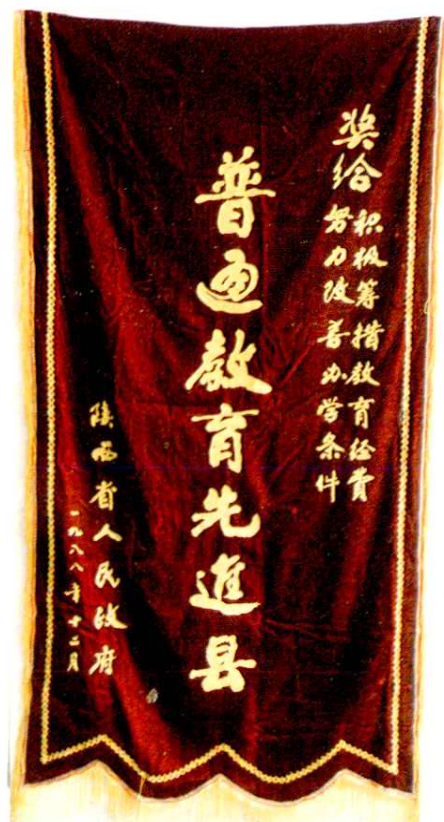 奖给
积极筹措教育经费
努力改善办学条件
普通教育先进县
陕西省人民政府
一九八八年十二月